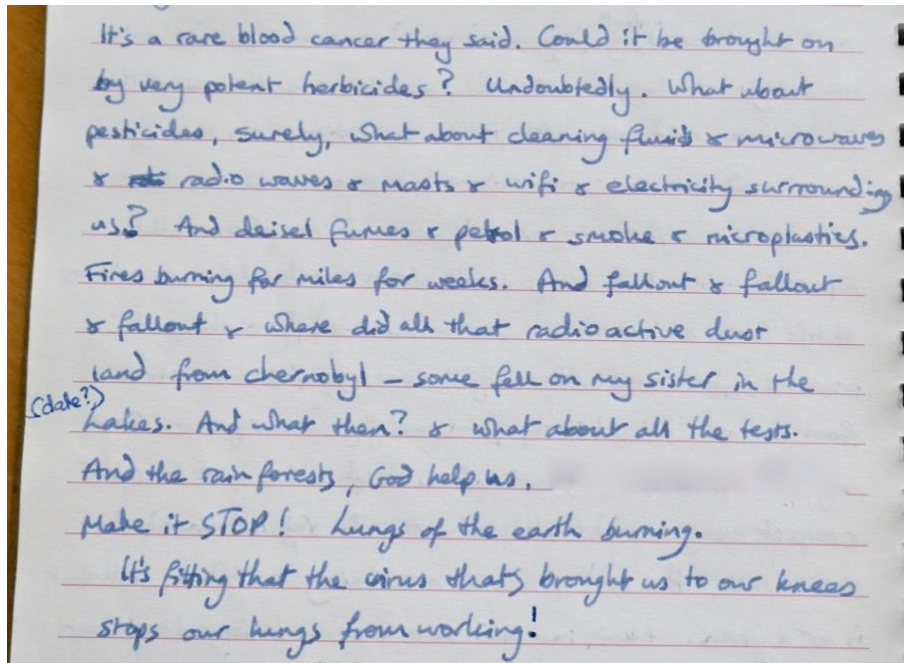 It's a rare blood cancer they said. Could it be brought on
by very potent herbicides? Undoubtedly. What about
pesticides, surely, what about cleaning fluids & microwaves
& radio waves & masts & wifi & electricity surrounding
us? And deisel fumes & petrol & smoke & microplastics.
Fires burning for miles for weeks. And fallout & fallout
& fallout & where did all that radioactive dust
land from chernobyl - some fell on my sister in the
(date?)
Lakes. And what then? & what about all the tests.
And the rain forests, God help us.
Make it STOP! Lungs of the earth burning.
It's fitting that the virus thats brought us to our knees
stops our lungs from working!